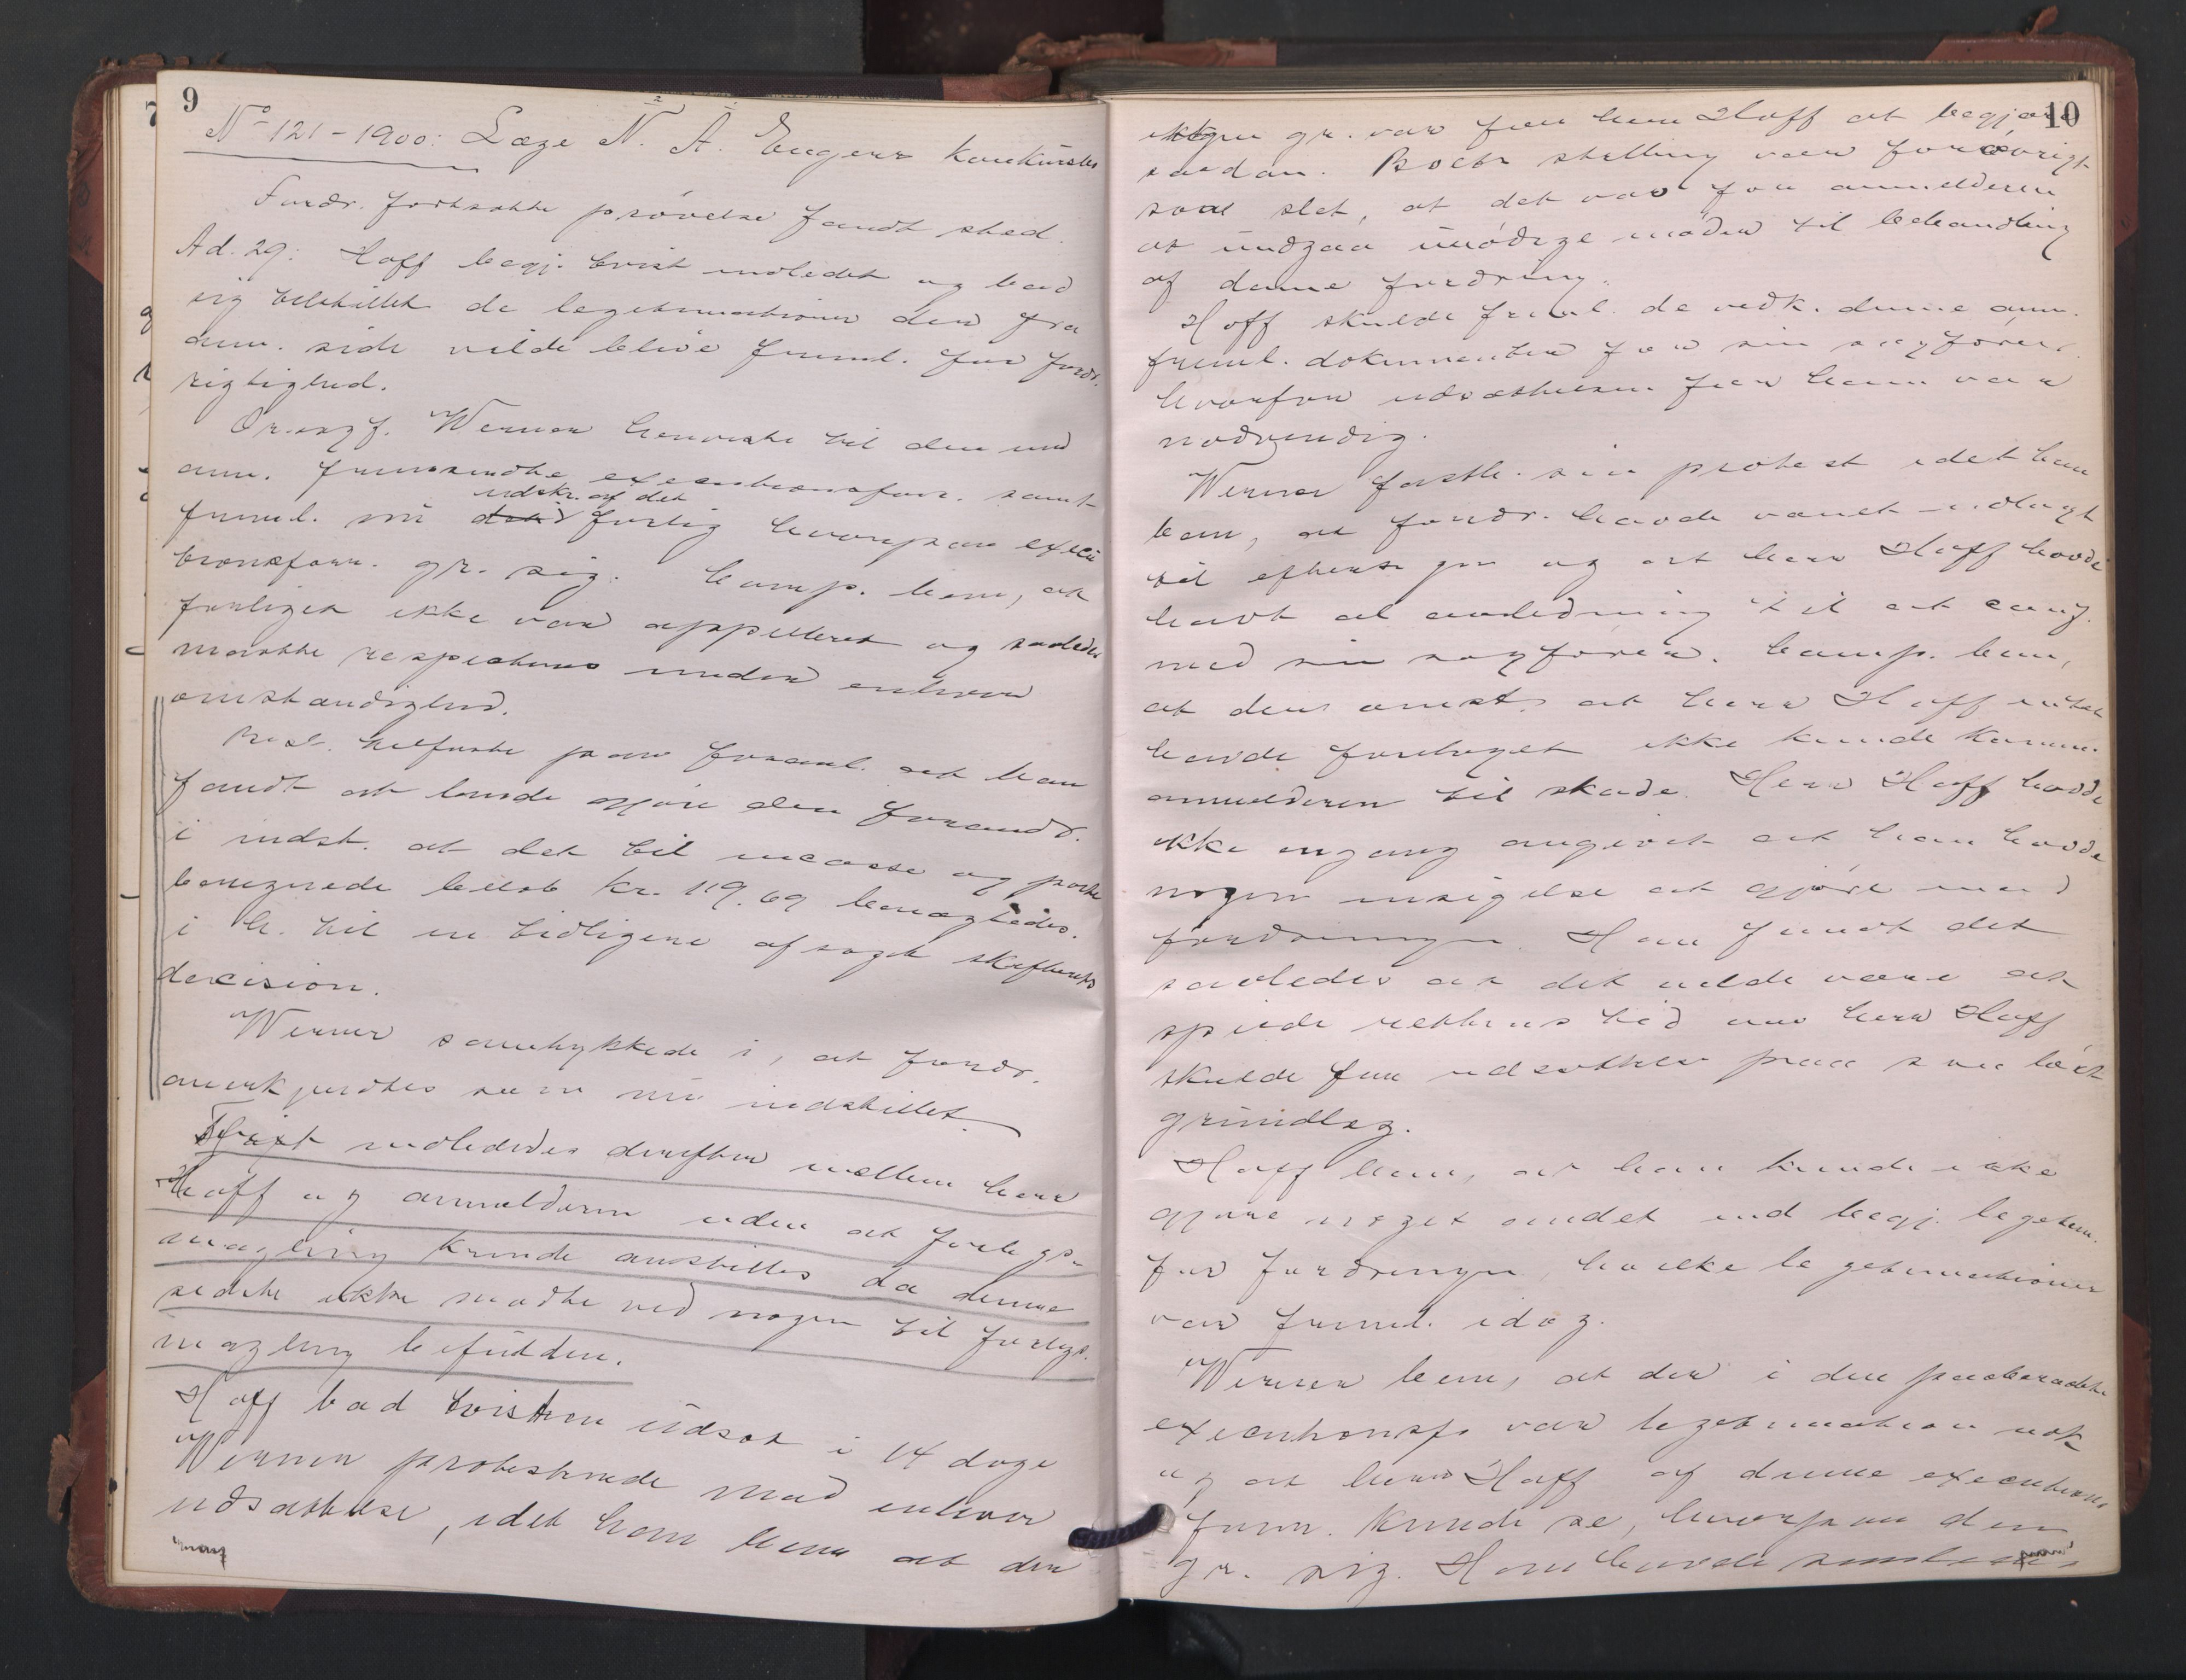 9
No 121-1900: Læge N. A. Eugens konkursbo
Fordr. fortsatte prøvelse fandt sted.
Ad. 29: Hoff begj. tvist indledet og bad
sig tilstillet de legitimationer der fra
anm. side vilde blive freml. for fordr.
rigtighed.
Or.sagf. Werner henviste til den med
anm. fremsendte executionsforr. samt
freml. nu udskr. af det forlig hvorpaa execu
tionsforr. gr. sig. Comp. bem., at
forliget ikke var appelleret og saaledes
maatte respecteres under enhver
omstændighed.
Best. tilførte prov. forsaml. at han
fandt at burde gjøre den forandr.
i indst. at det til incasso og porto
beregnede beløb kr. 119.69 benægtedes.
i h. til en tidligere afsagt skifterets
decision.
Werner samtykkede i, at fordr.
anerkjendtes som nu indstillet.
Tvist indlededes derefter mellem herr
Hoff og anmelderen uden at forligs-
mægling kunde anstilles da denne
sidste ikke mødte ved nogen til forligs-
mægling befuldm.
Hoff bad tvisten udsat i 14 dage
Werner protesterede mod enhver
udsættelse, idet han bem. at der
10
ingen gr. var for herr Hoff at begjære
saadan. Boets stilling var forøvrigt
saa slet, at det var for anmelderen
at undgaa unødige møder til behandling
af denne fordring.
Hoff skulde freml. de vedk. denne anm.
freml. dokumenter for sin sagfører
hvorfor udsættelsen for ham var
nødvendig.
Werner fasth. sin protest idet han
bem., at fordr. havde været udlagt
til eftersyn og at herr Hoff havde
havt al anledning til at conf.
med sin sagfører. Comp. bem.,
at den omst. at herr Hoff intet
havde foretaget ikke kunde komme
anmelderen til skade. Herr Hoff havde
ikke engang angivet at han havde
nogen indsigelse at gjøre mod
fordringen. Han fandt det
saaledes at det vilde være at
spilde rettens tid om herr Hoff
skulde faa udsættelse paa saa løst
grundlag.
Hoff bem., at han kunde ikke
gjøre noget andet end begj. legitim.
for fordringen, hvilke legitimationer
var freml. idag.
Werner bem., at der i den paaberaabte
executionsf. var legitimation nok
og at herr Hoff af denne executions
forr. kunde se, hvorpaa den
gr. sig. Han havde